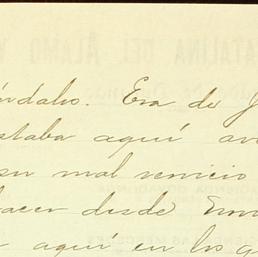 ATALINA DEL ALAMO V
ándalo. Era de J
staba aquí av
su mal servicio
hacer desde Enr
aquí en los g